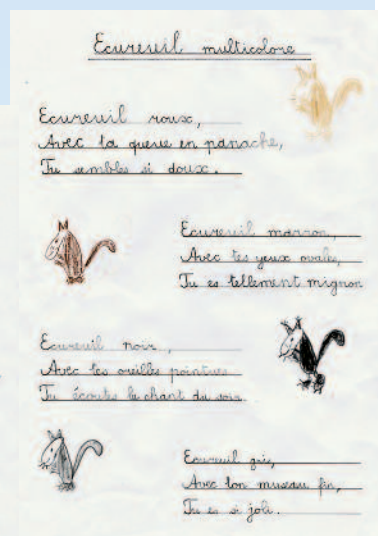 Ecureuil multicolore
Ecureuil roux,
Avec ta queue en panache,
Tu sembles si doux.
Ecureuil marron,
Avec tes yeux ovales,
Tu es tellement mignon
Ecureuil noir,
Avec tes oreilles pointues
Tu écoutes le chant du soir.
Ecureuil gris,
Avec ton museau fin,
Tu es si joli.